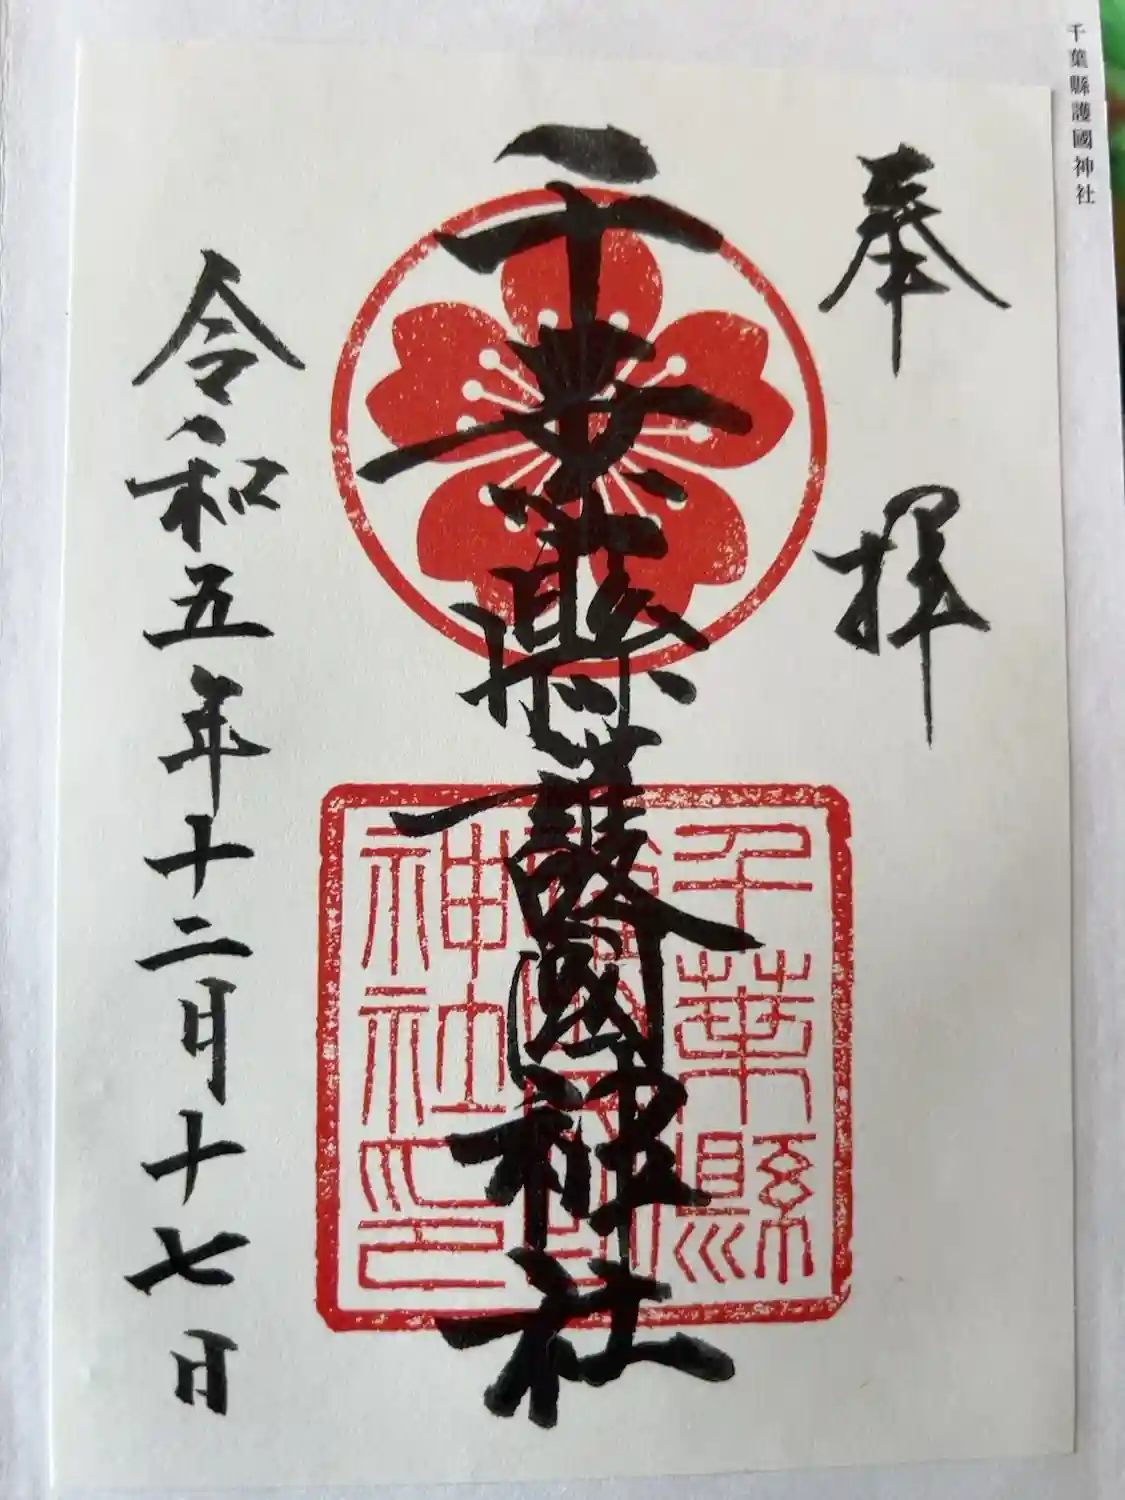 千葉縣護國神社
奉拝
千葉縣護國神社
千葉縣
護國
神社印
令和五年十二月十七日